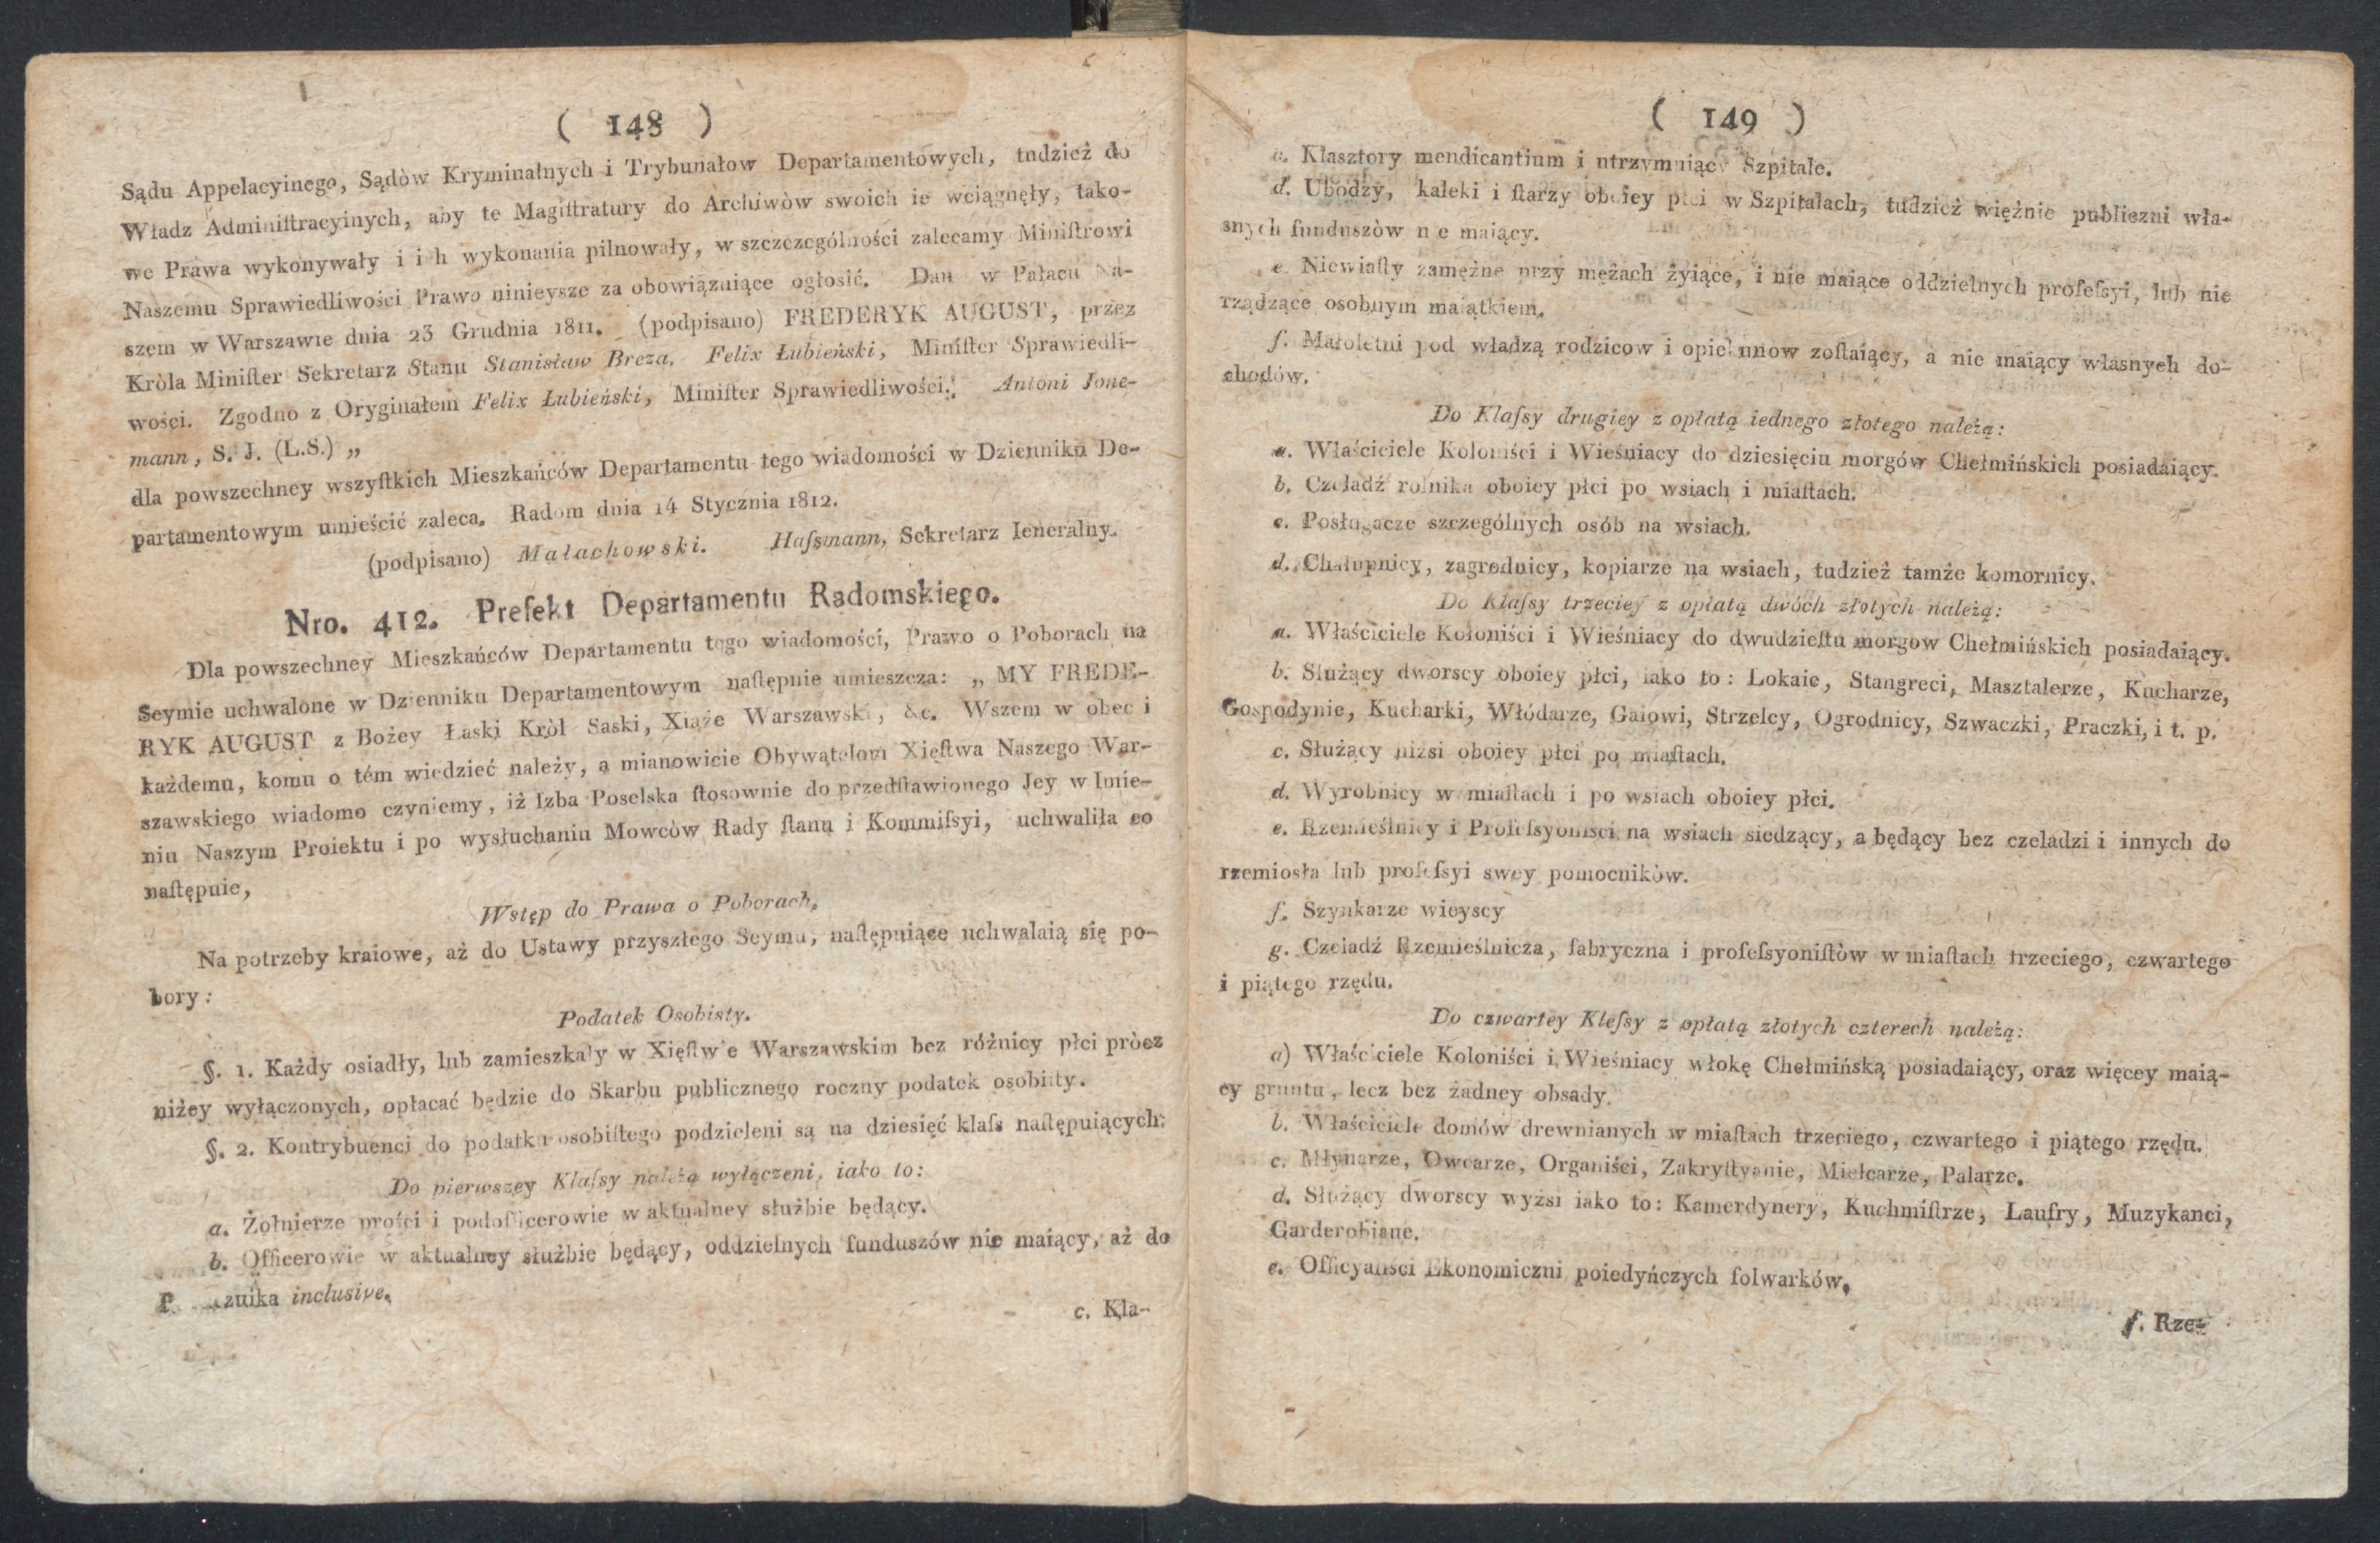 ( 148 )
Sądu Appelacyinego, Sądòw Kryminalnych i Trybunałow Departamentówych, tudzież do
Władz Adminiſtracyinych, aby te Magiſtratury do Archiwòw swoich ie wciągnęły, tako-
we Prawa wykonywały i ich wykonania pilnowały, w szczczególności zalecamy Miniſtrowi
Naszemu Sprawiedliwości Prawo ninieysze za obowiązuiące ogłosić. Dan w Pałacu Na-
szem w Warszawie dnia 23 Grudnia 1811. (podpisano) FREDERYK AUGUST, przez
Kròla Miniſter Sekretarz Stanu Stanisław Breza. Felix Łubieński, Miniſter Sprawiedli-
wości. Zgodno z Oryginałem Felix Łubieński, Miniſter Sprawiedliwości. Antoni Jone-
mann, S. J. (L.S.) „
dla powszechney wszyſtkich Mieszkańców Departamentu tego wiadomości w Dzienniku De-
partamentowym umieścić zaleca. Radom dnia 14 Stycznia 1812.
(podpisano) Małachowski. Haſsmann, Sekretarz Ieneralny.
Nro. 412. Prefekt Departamentu Radomskiego.
Dla powszechney Mieszkańców Departamentu tego wiadomości, Prawo o Poborach na
Seymie uchwalone w Dzienniku Departamentowym naſtępnie umieszcza: „ MY FREDE-
RYK AUGUST z Bożey Łaski Kròl Saski, Xiąże Warszawski, &c. Wszem w obec i
każdemu, komu o tém wiedzieć należy, a mianowicie Obywatelom Xięſtwa Naszego War-
szawskiego wiadomo czyniemy, iż Izba Poselska ſtosownie do przedſtawionego Jey w Imie-
niu Naszym Proiektu i po wysłuchaniu Mowcòw Rady ſtanu i Kommiſsyi, uchwaliła co
naſtępuie,
Wstęp do Prawa o Poborach,
Na potrzeby kraiowe, aż do Ustawy przyszłego Seymu, naſtępuiące uchwalaią się po-
bory:
Podatek Osobisty.
§. 1. Każdy osiadły, lub zamieszkały w Xięſtwie Warszawskim bez różnicy płci pròcz
niżey wyłączonych, opłacać będzie do Skarbu publicznego roczny podatek osobiſty.
§. 2. Kontrybuenci do podatku osobiſtego podzieleni są na dziesięć klaſs naſtępuiących:
Do pierwszey Klaſsy należą wyłączeni, iako to:
a. Żołnierze prości i podofficerowie w aktualney służbie będący.
b. Officerowie w aktualney służbie będący, oddzielnych funduszów nie maiący, aż do
inclusive.
c. Kla-
( 149 )
c. Klasztory mendicantium i utrzymuiący Szpitale.
d. Ubodzy, kaleki i ſtarzy oboiey płci w Szpitalach, tudzież więźnie publiczni wła-
snych funduszòw nie maiący.
e. Niewiaſty zamężne przy mężach żyiące, i nie maiące oddzielnych profeſsyi, lub nie
rządzące osobnym maiątkiem.
f. Małoletni pod władzą rodzicow i opiekunow zoſtaiący, a nie maiący własnych do-
chodów.
Do Klaſsy drugiey z opłatą iednego złotego należą:
a. Właściciele Koloniści i Wieśniacy do dziesięciu morgów Chełmińskich posiadaiący.
b. Czeladź rolnika oboiey płci po wsiach i miaſtach.
c. Posługacze szczególnych osób na wsiach.
d. Chałupnicy, zagrodnicy, kopiarze na wsiach, tudzież tamże komornicy.
Do Klaſsy trzeciey z opłatą dwóch złotych należą:
a. Właściciele Koloniści i Wieśniacy do dwudzieſtu morgow Chełmińskich posiadaiący.
b. Służący dworscy oboiey płci, iako to: Lokaie, Stangreci, Masztalerze, Kucharze,
Gospodynie, Kucharki, Włódarze, Gaiowi, Strzelcy, Ogrodnicy, Szwaczki, Praczki, i t. p.
c. Służący niżsi oboiey płci po miaſtach.
d. Wyrobnicy w miaſtach i po wsiach oboiey płci.
e. Rzemieślnicy i Profeſsyoniści na wsiach siedzący, a będący bez czeladzi i innych do
rzemiosła lub profeſsyi swey pomocnikòw.
f. Szynkarze wieyscy
g. Czeladź Rzemieślnicza, fabryczna i profeſsyoniſtòw w miaſtach trzeciego, czwartego
i piątego rzędu.
Do czwartey Kleſsy z opłatą złotych czterech należą:
a) Właściciele Koloniści i Wieśniacy włokę Chełmińską posiadaiący, oraz więcey maią-
cy gruntu, lecz bez żadney obsady.
b. Właściciele domów drewnianych w miaſtach trzeciego, czwartego i piątego rzędu.
c. Młynarze, Owczarze, Organiści, Zakryſtyanie, Mielcarze, Palarze.
d. Służący dworscy wyżsi iako to: Kamerdynery, Kuchmiſtrze, Laufry, Muzykanci,
Garderobiane.
e. Officyaliści Ekonomiczni poiedyńczych folwarków.
f. Rze-